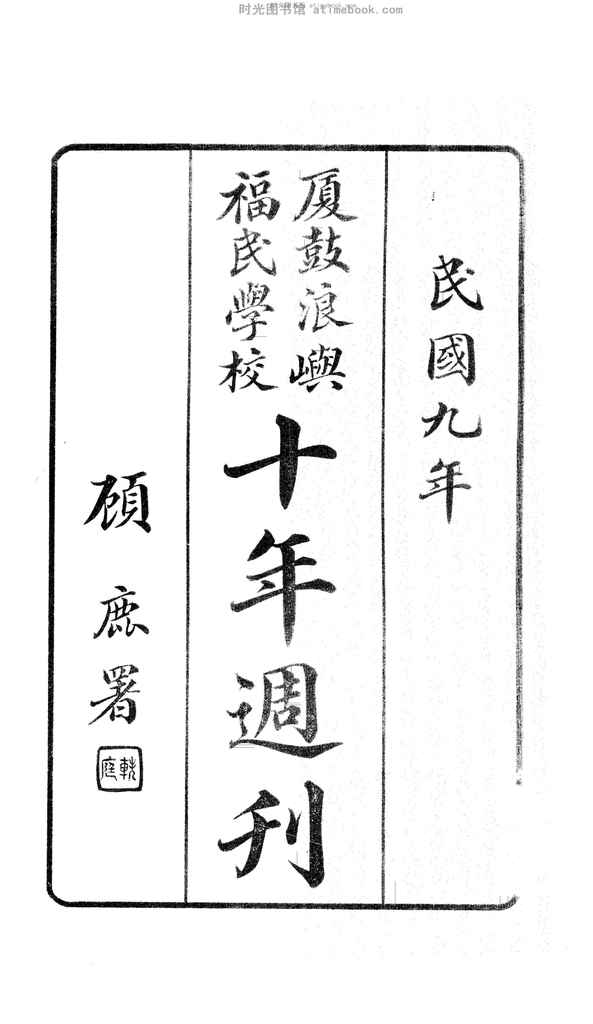 时光图书馆 atimebook.com
民國九年
厦鼓浪嶼
福民學校
十年週刊
顾鹿署